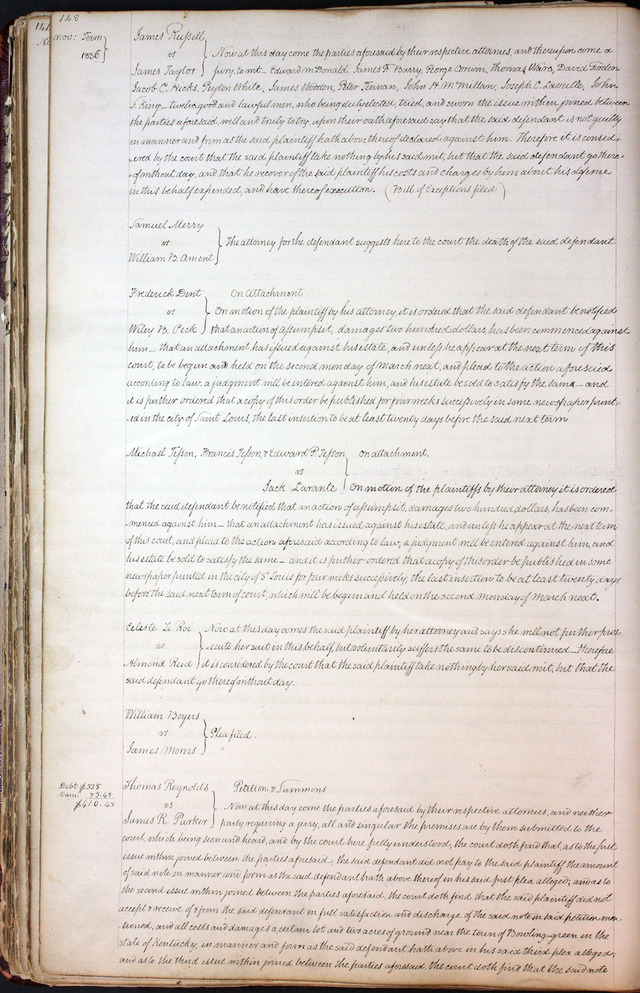 148
Nov: Term
1836
James Russell
vs
James Taylor
Now at this day come the parties aforesaid by their respective attornies, and thereupon come a
jury, to wit. Edward McDonald, James F. Barry, George Corwin, Thomas Ware, David
Jacob C. Hicks, Peyton White, James Wooden, Peter Tiernan, John H. McMillan, Joseph C. Laveille, John
F. King twelve good and lawful men, who being duly elected, tried, and sworn the issue within joined between
the parties aforesaid, well and truly to try, upon their oath aforesaid say that the said defendant is not guilty
in manner and form as the said plaintiff hath above thereof declared against him. Therefore it is consid-
ered by the court that the said plaintiff take nothing by his said writ, but that the said defendant go there-
of without day, and that he recover of the said plaintiff his costs and charges by him about his defense
in this behalf expended, and have thereof execution. (Bill of Exceptions filed)
Samuel Merry
vs
William B. Ament
The attorney for the defendant suggests here to the court the death of the said defendant
Frederick Dent
vs
Wiley B. Peck
On Attachment
On motion of the plaintiff by his attorney, it is ordered that the said defendant be notified
that an action of assumpsit, damages two hundred dollars, has been commenced against
him - that an attachment has issued against his estate, and unless he appear at the next term of this
court, to be begun and held on the second monday of March next, and plead to the action aforesaid
according to law a judgment will be entered against him, and his estate be sold to satisfy the same - and
it is further ordered that a copy of this order be published for four weeks successively in some newspaper print-
-ed in the city of Saint Louis, the last insertion to be at least twenty days before the said next term
Michael Tesson, Francis Tesson, & Edward P. Tesson
vs
Jack Larante
On attachment.
On motion of the plaintiffs by their attorney it is ordered
that the said defendant be notified that an action of assumpsit, damages two hundred dollars, has been com-
menced against him - that an attachment has issued against his estate, and unless he appear at the next term
of this court, and plead to the action aforesaid according to law, a judgment will be entered against him, and
his estate be sold to satisfy the same - and it is further ordered that a copy of this order be published in some
newspaper printed in the city of St Louis for four weeks successively, the last insertion to be at least twenty days
before the said next term of court, which will be begun and held on the second monday of March next.
Celeste Le Roi
vs
Almond Reid
Now at this day comes the said plaintiff by her attorney and says she will not further pros-
-ecute her suit in this behalf, but voluntarily suffers the same to be discontinued - therefore
it is considered by the court that the said plaintiff take nothing by her said writ, but that the
said defendant go thereof without day.
William Boyers
vs
James Morris
Plea filed.
Debt $325
Dam: 85.48
$410.48
Thomas Reynolds
vs
James R. Parker
Petition & Summons
Now at this day come the parties aforesaid by their respective attornies, and neither
party requiring a jury, all and singular the premises are by them submitted to the
court, which being seen and heard, and by the court here fully understood, the court doth find that, as to the first
issue within joined between the parties aforesaid, the said defendant did not pay to the said plaintiff the amount
of said note in manner and form as the said defendant hath above thereof in his said first plea alleged; and as to
the second issue within joined between the parties aforesaid, the court doth find that the said plaintiff did not
accept & receive of & from the said defendant in full satisfaction and discharge of the said note in said petition men-
tioned, and all costs and damages a certain lot and two acres of ground near the town of Bowling-green in the
state of Kentucky, in manner and form as the said defendant hath above in his said third plea alleged;
and as to the third issue within joined between the parties aforesaid the court doth find that the said note